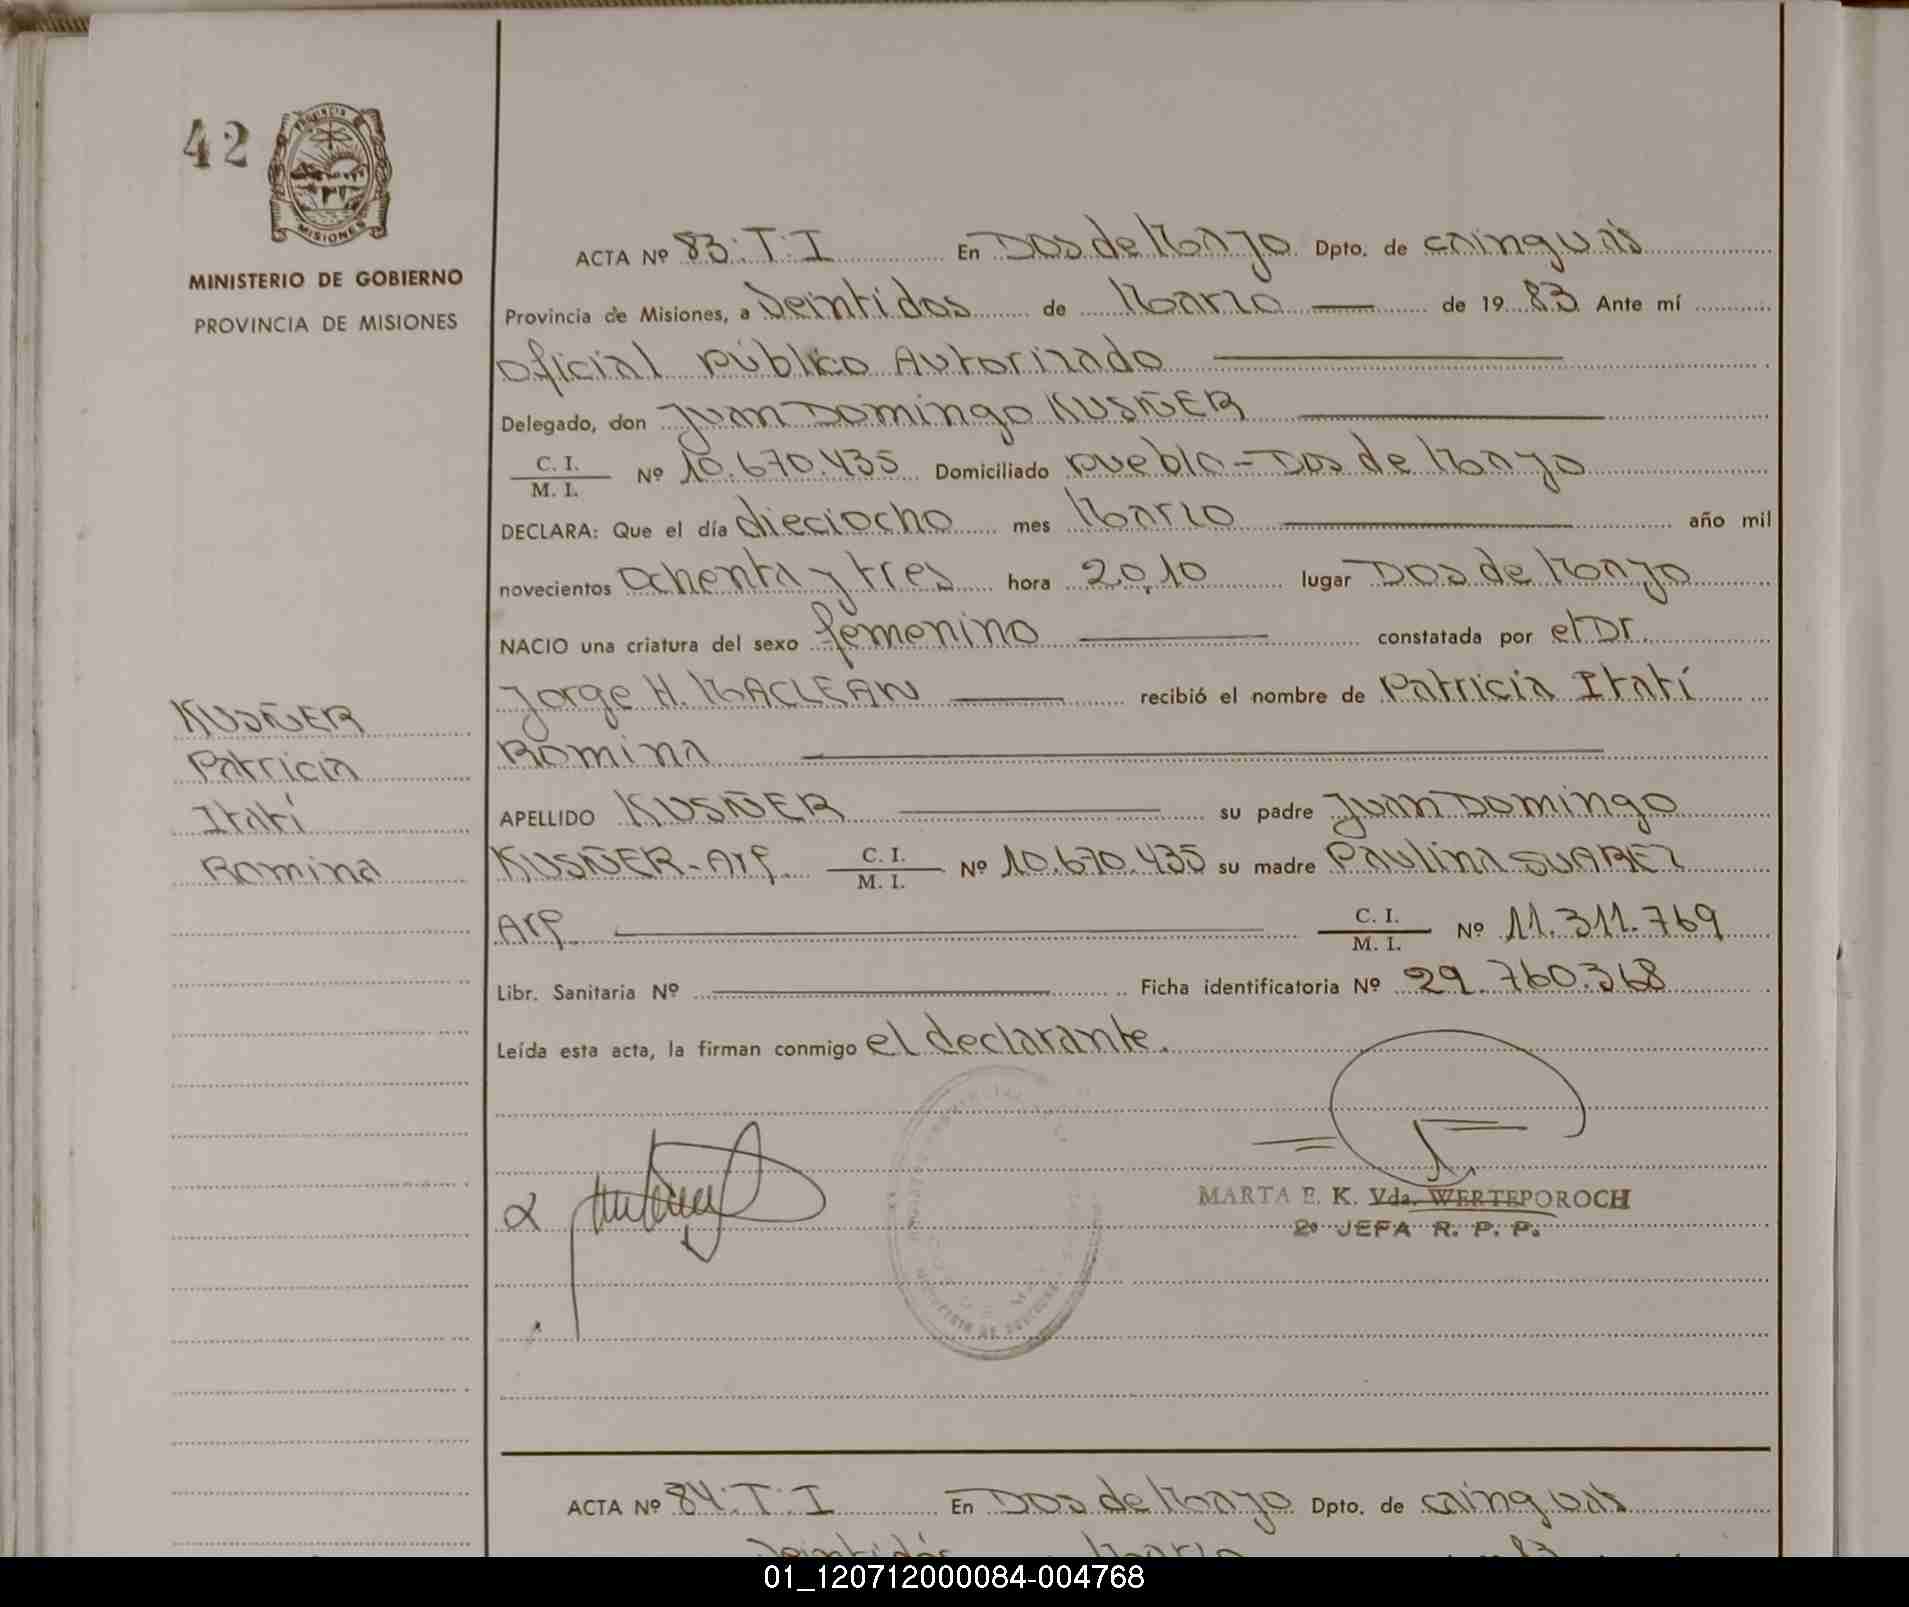 42
PROVINCIA
MISIONES
MINISTERIO DE GOBIERNO
PROVINCIA DE MISIONES
ACTA Nº 83.T.I En Dos de Mayo Dpto. de Cainguás
Provincia de Misiones, a Veintidos de Marzo de 1983 Ante mí
Oficial Público Autorizado
Delegado, don Juan Domingo KUSÑER
C. I. / M. I. Nº 10.670.435 Domiciliado Pueblo - Dos de Mayo
DECLARA: Que el día dieciocho mes Marzo año mil
novecientos ochenta y tres hora 20,10 lugar Dos de Mayo
NACIO una criatura del sexo femenino constatada por el Dr.
Jorge H. MACLEAN recibió el nombre de Patricia Itatí
Romina
APELLIDO KUSÑER su padre Juan Domingo
KUSÑER - Arg. C. I. / M. I. Nº 10.670.435 su madre Paulina SUAREZ
Arg. C. I. / M. I. Nº 11.311.769
Libr. Sanitaria Nº Ficha identificatoria Nº 29.760.368
Leída esta acta, la firman conmigo el declarante.
KUSÑER
Patricia
Itatí
Romina
MARTA E. K. Vda. WERTEPOROCH
2º JEFA R. P. P.
ACTA Nº 84.T.I En Dos de Mayo Dpto. de Cainguás
Veintidós Marzo 83
01_120712000084-004768